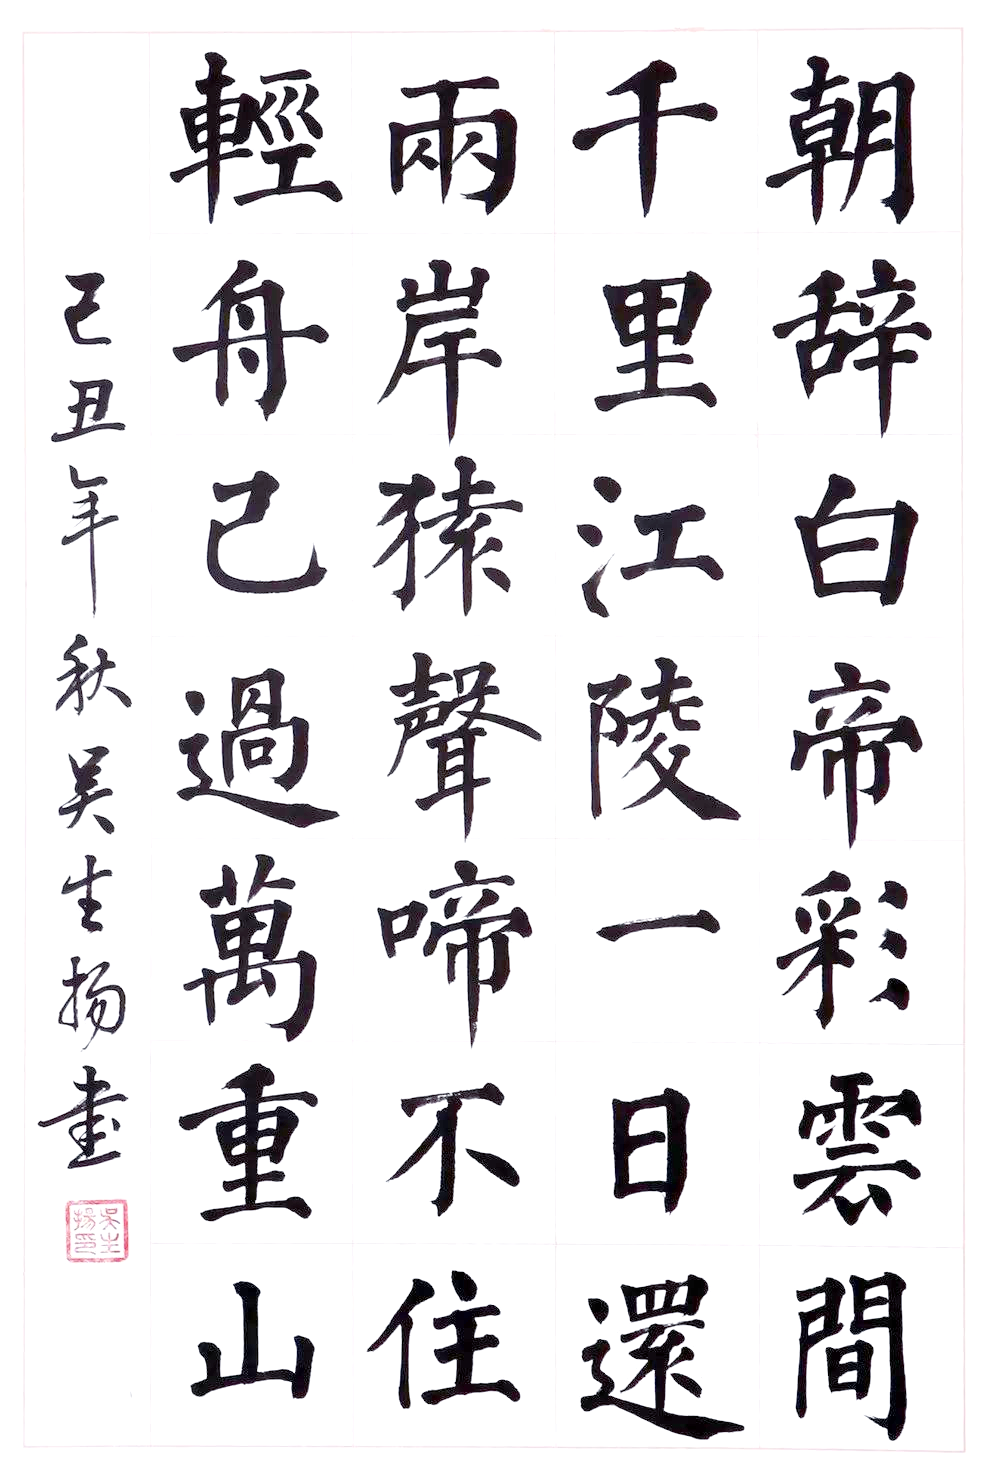 朝辞白帝彩雲間
千里江陵一日還
兩岸猿聲啼不住
輕舟已過萬重山
己丑年秋吴生扬書
吳生揚印